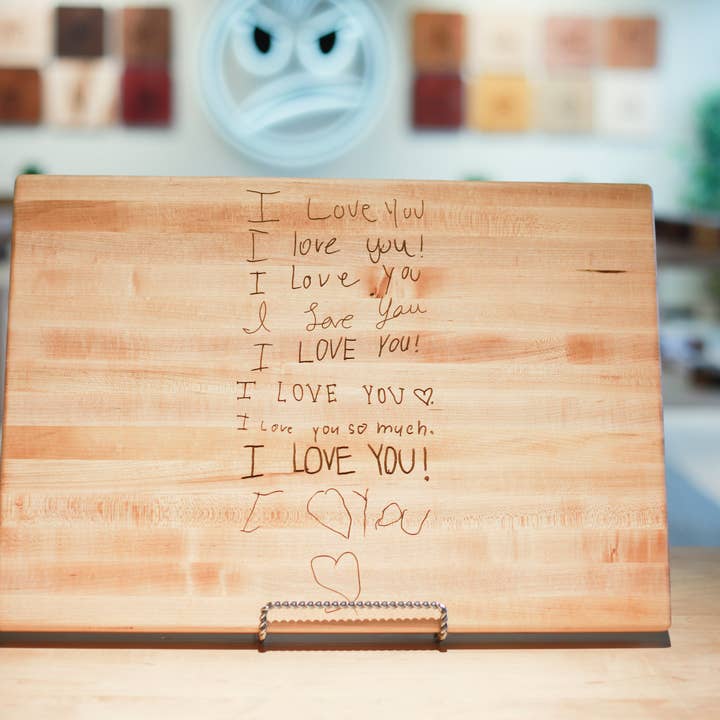 I Love You
I love you!
I Love you
I Love You
I LOVE YOU!
I LOVE YOU ♡.
I Love you so much.
I LOVE YOU!
I ♡ You
♡